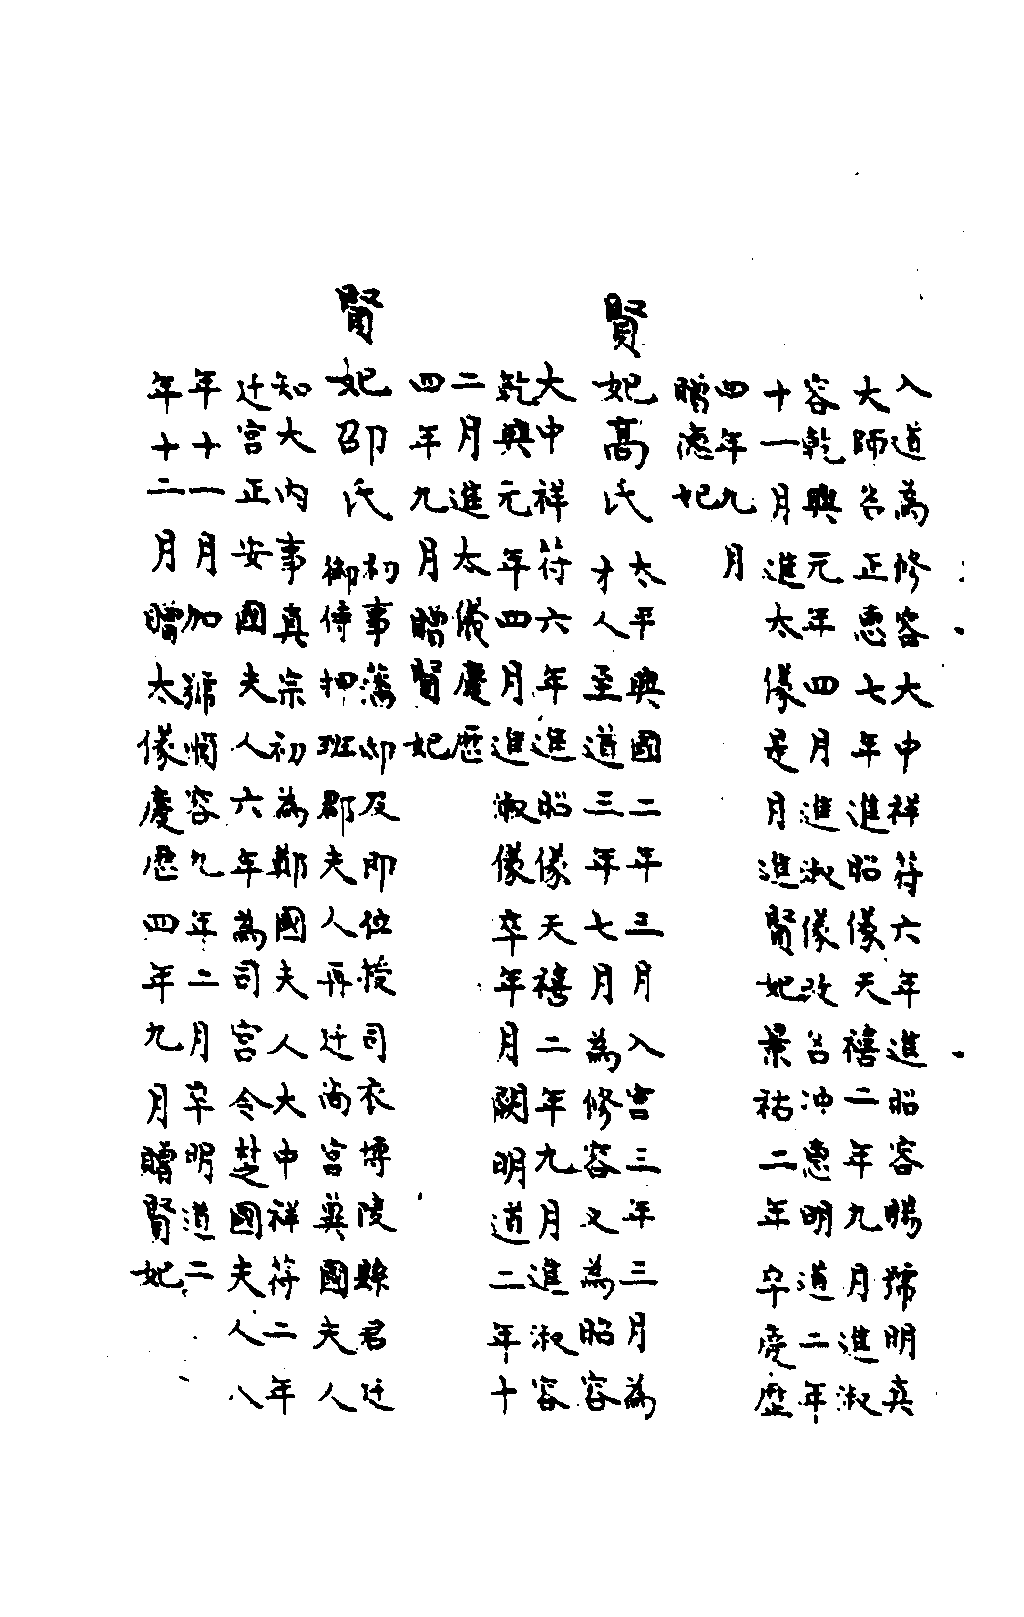 入道萬修容大中祥符六年進昭容賜號明真
大師名正惠七年進昭儀天禧二年九月進淑
容乾興元年四月進淑儀改名沖惠明道二年
十一月進太儀是月進賢妃景祐二年卒慶歷
四年九月
贈德妃
賢妃高氏
太平興國二年三月入宮三年三月為
才人至道三年七月為修容又為昭容
大中祥符六年進昭儀天禧二年九月進淑容
乾興元年四月進淑儀卒年月闕明道二年十
二月進太儀慶歷
四年九月贈賢妃
賢妃邵氏
初事藩邸及即位授司衣博陵縣君迁
御侍押班郡夫人再迁尚宮冀國夫人
知大內事真宗初為鄭國夫人大中祥符二年
迁宮正安國夫人六年為司宮令楚國夫人八
年十一月加號順容九年二月卒明道二
年十二月贈太儀慶歷四年九月贈賢妃